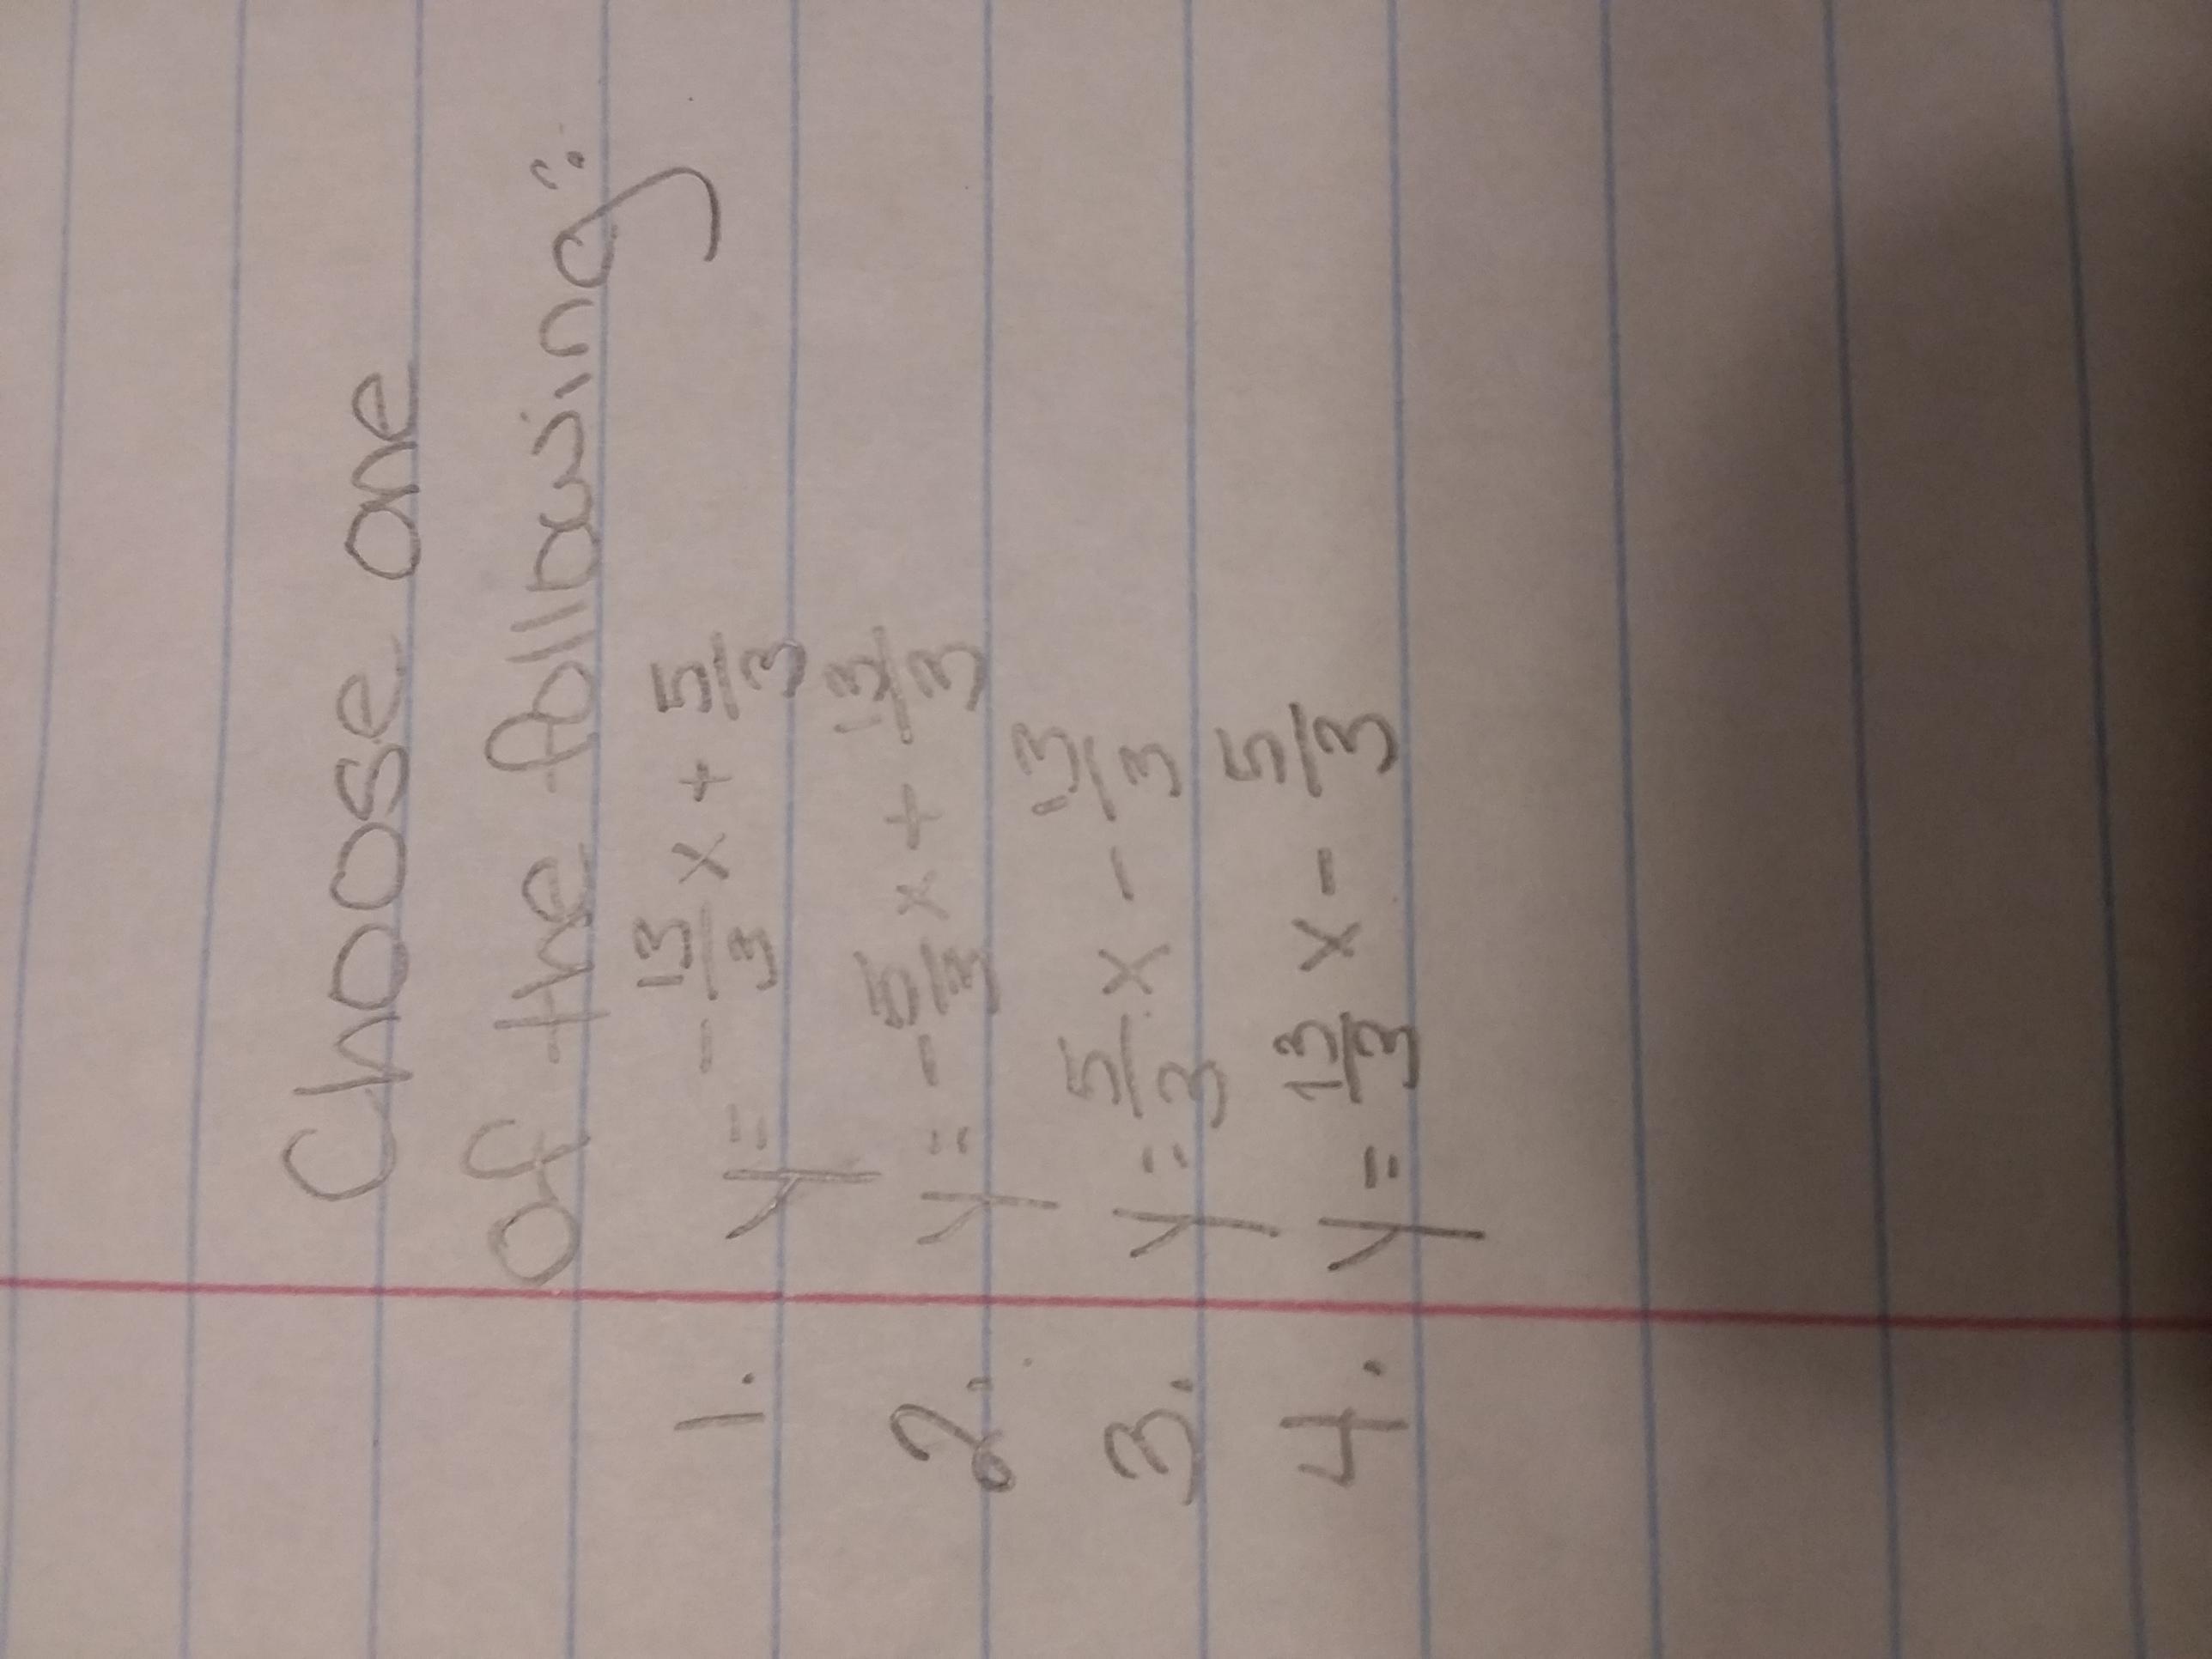 Choose one
of the following:
1. y = -13/3 x + 5/3
2. y = -5/3 x + 13/3
3. y = 5/3 x - 13/3
4. y = 13/3 x - 5/3